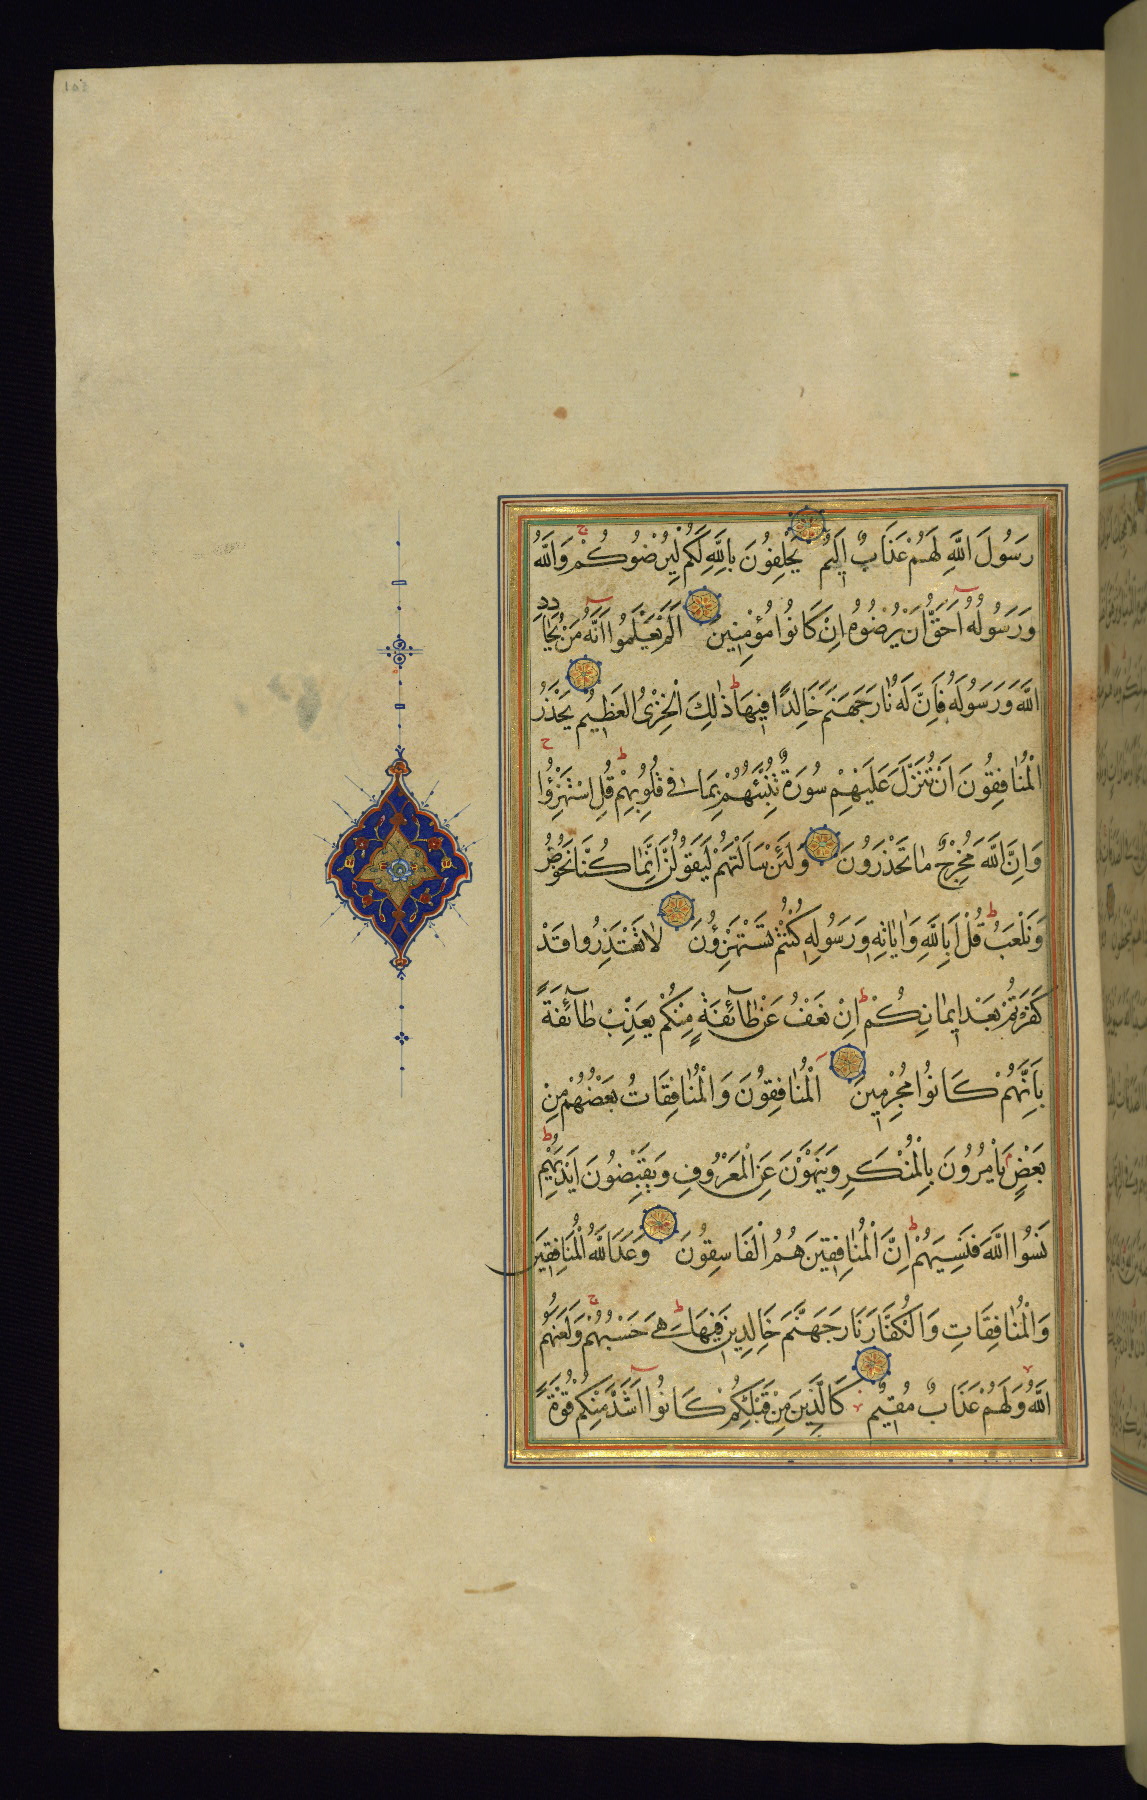 رَسُولَ اللَّهِ لَهُمْ عَذَابٌ اَلِيمٌ يَحْلِفُونَ بِاللَّهِ لَكُمْ لِيُرْضُوكُمْ وَاللَّهُ
وَرَسُولُهُ اَحَقُّ اَنْ يُرْضُوهُ اِنْ كَانُوا مُؤْمِنِينَ اَلَمْ يَعْلَمُوا اَنَّهُ مَنْ يُحَادِدِ
اللَّهَ وَرَسُولَهُ فَاَنَّ لَهُ نَارَ جَهَنَّمَ خَالِدًا فِيهَا ذٰلِكَ الْخِزْيُ الْعَظِيمُ يَحْذَرُ
الْمُنَافِقُونَ اَنْ تُنَزَّلَ عَلَيْهِمْ سُورَةٌ تُنَبِّئُهُمْ بِمَا فِي قُلُوبِهِمْ قُلِ اسْتَهْزِؤُا
وَاِنَّ اللَّهَ مُخْرِجٌ مَا تَحْذَرُونَ وَلَئِنْ سَاَلْتَهُمْ لَيَقُولُنَّ اِنَّمَا كُنَّا نَخُوضُ
وَنَلْعَبُ قُلْ اَبِاللَّهِ وَاٰيَاتِهِ وَرَسُولِهِ كُنْتُمْ تَسْتَهْزِؤُنَ لَا تَعْتَذِرُوا قَدْ
كَفَرْتُمْ بَعْدَ اِيمَانِكُمْ اِنْ نَعْفُ عَنْ طَآئِفَةٍ مِنْكُمْ نُعَذِّبْ طَآئِفَةً
بِاَنَّهُمْ كَانُوا مُجْرِمِينَ اَلْمُنَافِقُونَ وَالْمُنَافِقَاتُ بَعْضُهُمْ مِنْ
بَعْضٍ يَاْمُرُونَ بِالْمُنْكَرِ وَيَنْهَوْنَ عَنِ الْمَعْرُوفِ وَيَقْبِضُونَ اَيْدِيَهُمْ
نَسُوا اللَّهَ فَنَسِيَهُمْ اِنَّ الْمُنَافِقِينَ هُمُ الْفَاسِقُونَ وَعَدَ اللَّهُ الْمُنَافِقِينَ
وَالْمُنَافِقَاتِ وَالْكُفَّارَ نَارَ جَهَنَّمَ خَالِدِينَ فِيهَا هِيَ حَسْبُهُمْ وَلَعَنَهُمُ
اللَّهُ وَلَهُمْ عَذَابٌ مُقِيمٌ كَالَّذِينَ مِنْ قَبْلِكُمْ كَانُوا اَشَدَّ مِنْكُمْ قُوَّةً